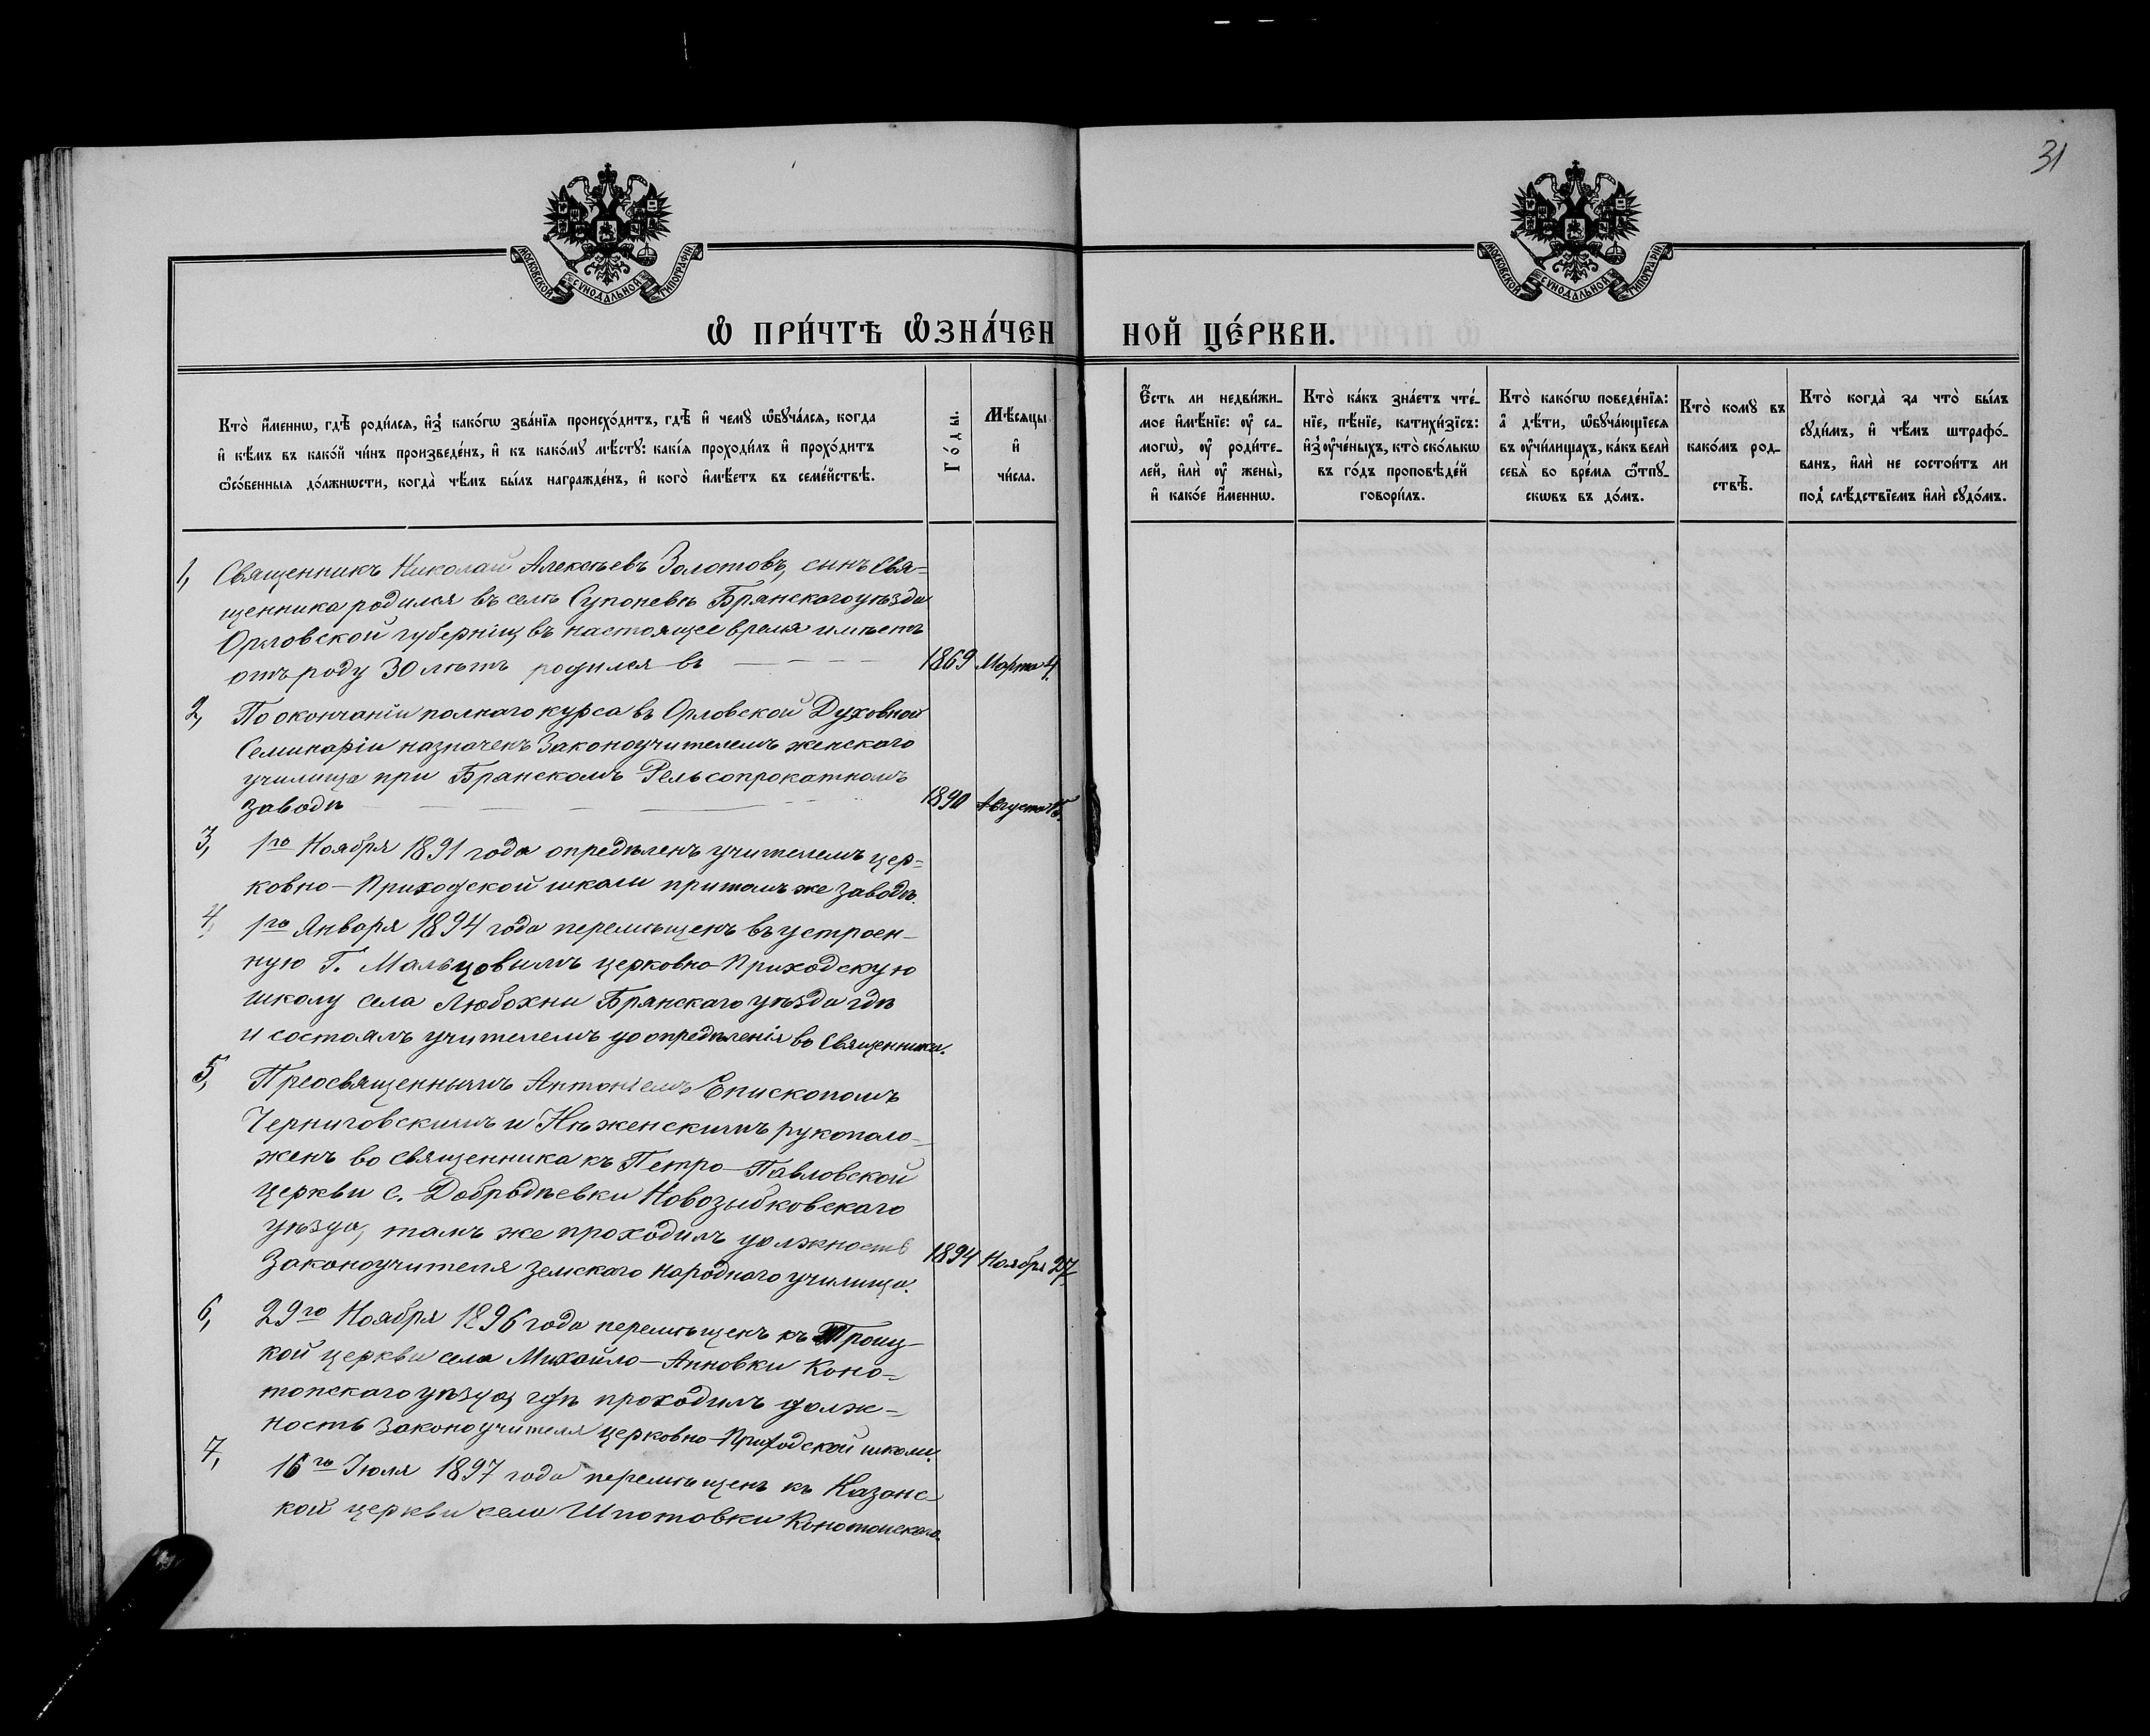 31
МОСКОВСКОЙ СѴНОДАЛЬНОЙ ТИПОГРАФІИ
МОСКОВСКОЙ СѴНОДАЛЬНОЙ ТИПОГРАФІИ
Ѡ ПРИ́ЧТѢ Ѡ҆ЗНА́ЧЕННОЙ ЦЕ́РКВИ.
Кто̀ и҆́меннѡ, гдѣ̀ роди́лся, и҆з̾ како́гѡ зва́нїя происхо́дитъ, гдѣ̀ и҆ чемꙋ̀ ѡ҆бꙋча́лся, когда
и҆ кѣ́мъ въ како́й чи́нъ произведе́нъ, и҆ къ како́мꙋ мѣ́стꙋ: какі́я проходи́лъ и҆ прохо́дитъ
ѻ҆со́бенныя до́лжнѡсти, когда̀ чѣ́мъ бы́лъ награжде́нъ, и҆ кого̀ и҆мѣ́етъ въ семе́йствѣ.
Го́ды.
Мѣ́сяцы
и҆
чи́сла.
Е҆́сть ли недви́жи-
мое и҆мѣ́нїе: ᲂу҆ са-
могѡ̀, ᲂу҆ роди́те-
лей, и҆лѝ ᲂу҆ жены̀,
и҆ како́е и҆́меннѡ.
Кто̀ ка́къ зна́етъ чте́-
нїе, пѣ́нїе, катихи́зїсъ:
и҆з̾ ᲂу҆че́ныхъ, кто̀ ско́лькѡ
въ го́дъ проповѣ́дей
говори́лъ.
Кто̀ како́гѡ поведе́нїя:
а҆ дѣ́ти, ѡ҆бꙋча́ющїеся
въ ᲂу҆чи́лищахъ, ка́къ велѝ
себя̀ во вре́мя ѿпꙋ-
скѡвъ въ до́мъ.
Кто̀ комꙋ̀ въ
како́мъ род-
ствѣ̀.
Кто̀ когда̀ за что̀ бы́лъ
сꙋди́мъ, и҆ чѣ́мъ штрафо́-
ванъ, и҆лѝ не состои́тъ ли
под̾ слѣ́дствїемъ и҆лѝ сꙋдо́мъ.
1, Священникъ Николай Алексѣевъ Золотовъ, сынъ Свя-
щенника родился въ селѣ Супоневѣ Брянскаго уѣзда
Орловской губерніи, въ настоящее время имѣетъ
отъ роду 30 лѣтъ родился въ — — — — 1869 Марта 4.
2, По окончаніи полнаго курса въ Орловской Духовной
Семинаріи назначенъ Законоучителемъ женскаго
училища при Брянскомъ Рельсопрокатномъ
Заводѣ — — — — 1890 Августа 15.
3, 1го Ноября 1891 года опредѣленъ учителемъ цер-
ковно-Приходской школы при томъ же Заводѣ.
4, 1го Января 1894 года перемѣщенъ въ устроен-
ную Г. Мальцовымъ церковно-Приходскую
школу села Любохны Брянскаго уѣзда гдѣ
и состоялъ учителемъ до опредѣленія во Священники.
5, Преосвященнымъ Антоніемъ Епископомъ
Черниговскимъ и Нѣженскимъ рукополо-
женъ во священника къ Петро-Павловской
церкви с. Добродѣевки Новозыбковскаго
уѣзда, тамъ же проходилъ должность
Законоучителя земскаго народнаго училища. 1894 Ноября 27
6, 29го Ноября 1896 года перемѣщенъ къ Троиц-
кой церкви села Михайло-Анновки Коно-
топскаго уѣзда, гдѣ проходилъ долж-
ность законоучителя церковно-Приходской школы.
7, 16го Іюля 1897 года перемѣщенъ къ Казанс-
кой церкви села Шпотовки Конотопскаго